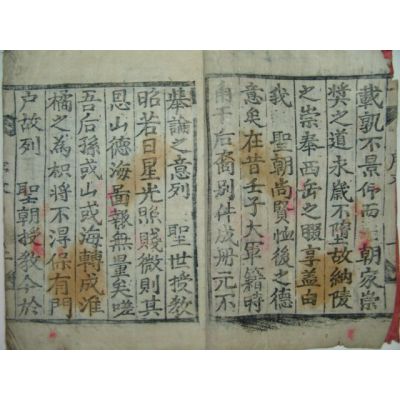 載孰不景仰而 朝家崇
獎之道永歲不墮故納陵
之崇奉西岳之腏享盖白
我 聖朝尚賢恤後之德
意矣在昔壬子大軍籍時
角干后裔別件成册元不
擧論之意列 聖世授敎
昭若日星光照賤微則其
恩山德海啚報無量矣嗟
吾后孫或山或海轉成淮
橘之為枳將不得保有門
戶故列 聖朝授敎今於